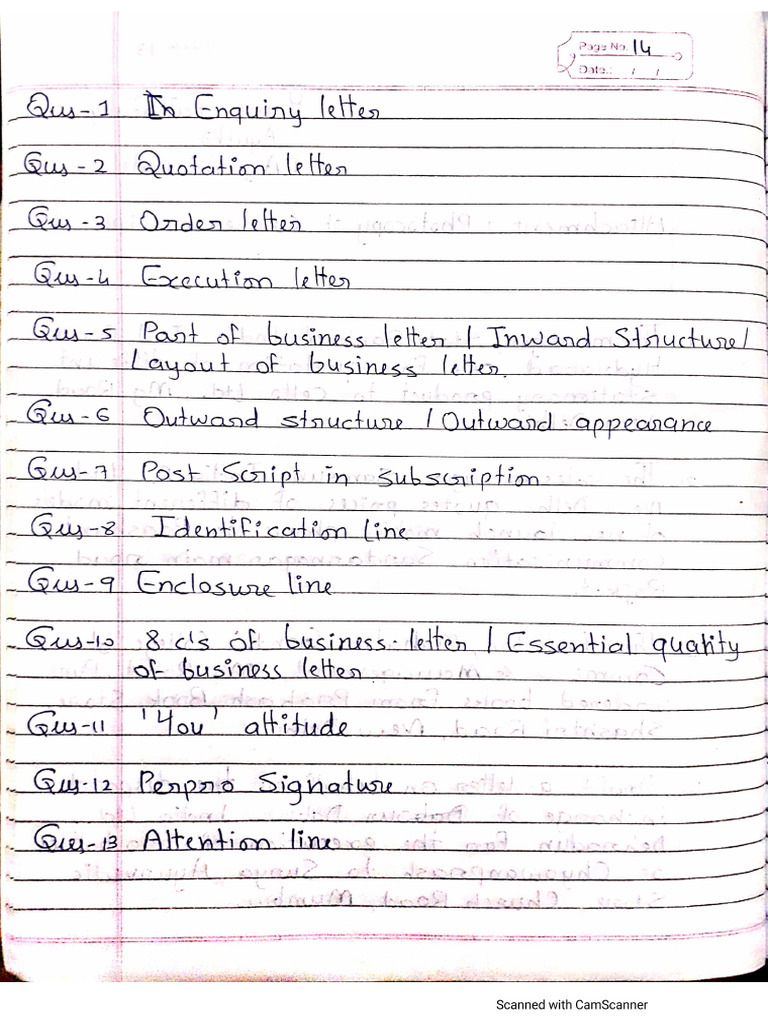 Page No. 14
Date.: / /
Qus-1 In Enquiry letter
Qus-2 Quotation letter
Qus-3 Order letter
Qus-4 Execution letter
Qus-5 Part of business letter / Inward Structure/
Layout of business letter.
Qus-6 Outward structure / Outward appearance
Qus-7 Post Script in subscription
Qus-8 Identification line
Qus-9 Enclosure line
Qus-10 8 c's of business letter / Essential quality
of business letter
Qus-11 'You' attitude
Qus-12 Perpro Signature
Qus-13 Attention line
Scanned with CamScanner